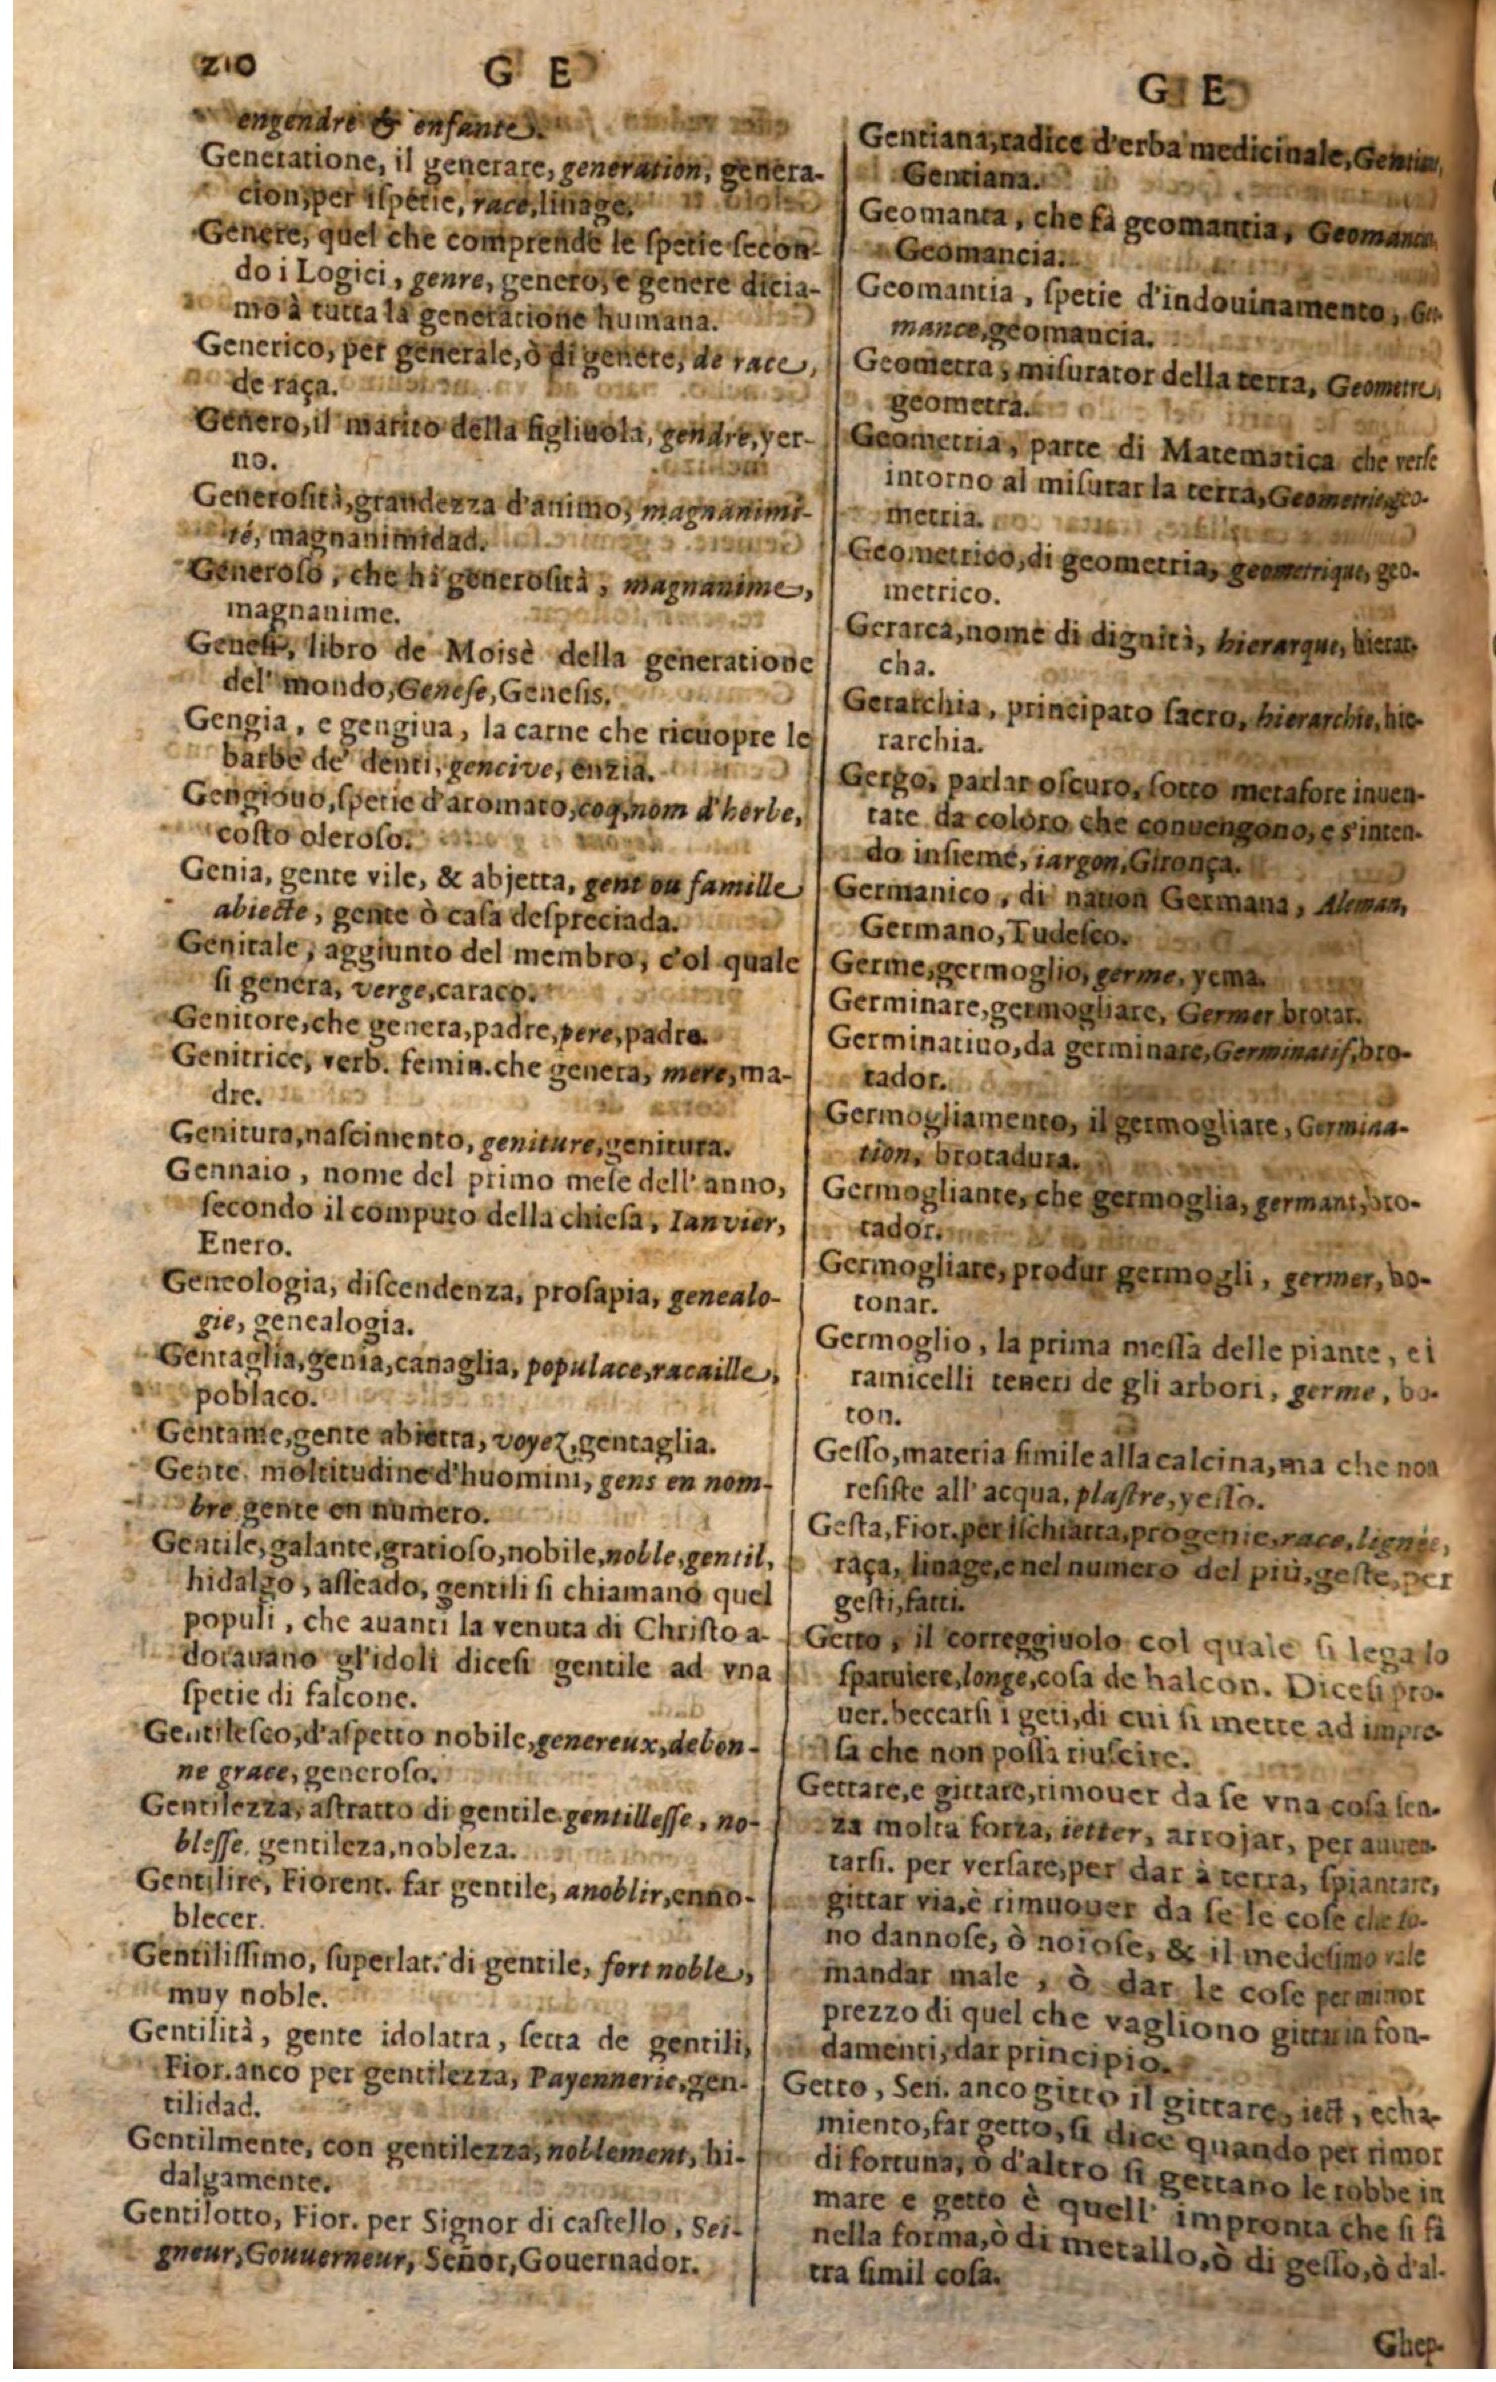 210
G E
engendre & enfante.
Generatione, il generare, generation, genera-
cion, per ispetie, race, linage.
Genere, quel che comprende le spetie secon-
do i Logici, genre, genero, e genere dicia-
mo à tutta la generatione humana.
Generico, per generale, ò di genere, de race,
de raça.
Genero, il marito della figliuola, gendre, yer-
no.
Generosità, grandezza d'animo, magnanimi-
té, magnanimidad.
Generoso, che hà generosità, magnanime,
magnanime.
Genesi, libro de Moisè della generatione
del' mondo, Genese, Genesis.
Gengia, e gengiua, la carne che ricuopre le
barbe de' denti, gencive, enzia.
Gengiouo, spetie d'aromato, coq, nom d'herbe,
costo oleroso.
Genia, gente vile, & abjetta, gent ou famille
abiecte, gente ò casa despreciada.
Genitale, aggiunto del membro, c'ol quale
si genera, verge, caraco.
Genitore, che genera, padre, pere, padre.
Genitrice, verb. femin. che genera, mere, ma-
dre.
Genitura, nascimento, geniture, genitura.
Gennaio, nome del primo mese dell' anno,
secondo il computo della chiesa, Ianvier,
Enero.
Geneologia, discendenza, prosapia, genealo-
gie, genealogia.
Gentaglia, genia, canaglia, populace, racaille,
poblaco.
Gentame, gente abietta, voyez, gentaglia.
Gente. moltitudine d'huomini, gens en nom-
bre gente en numero.
Gentile, galante, gratioso, nobile, noble, gentil,
hidalgo, asseado, gentili si chiamano quel
populi, che auanti la venuta di Christo a-
dorauano gl'idoli dicesi gentile ad vna
spetie di falcone.
Gentilesco, d'aspetto nobile, genereux, de bon-
ne grace, generoso.
Gentilezza, astratto di gentile. gentillesse, no-
blesse. gentileza, nobleza.
Gentilire, Fiorent. far gentile, anoblir, enno-
blecer.
Gentilissimo, superlat. di gentile, fort noble,
muy noble.
Gentilità, gente idolatra, setta de gentili,
Fior. anco per gentilezza, Payennerie, gen-
tilidad.
Gentilmente, con gentilezza, noblement, hi-
dalgamente.
Gentilotto, Fior. per Signor di castello, Sei-
gneur, Gouuerneur, Señor, Gouernador.
G E
Gentiana, radice d'erba medicinale,
Gentiana.
Geomanta, che fà geomantia,
Geomancia.
Geomantia, spetie d'indouinamento, Geo-
mance, geomancia.
Geometra, misurator della terra, Geometre,
geometra.
Geometria, parte di Matematica che verse
intorno al misurar la terra, Geometrie, geo-
metria.
Geometrico, di geometria, geometrique, geo-
metrico.
Gerarca, nome di dignità, hierarque, hierar-
cha.
Gerarchia, principato sacro, hierarchie, hie-
rarchia.
Gergo, parlar oscuro, sotto metafore inuen-
tate da coloro che conuengono, e s'inten-
do insieme, iargon, Gironça.
Germanico, di nation Germana, Aleman,
Germano, Tudesco.
Germe, germoglio, germe, yema.
Germinare, germogliare, Germer brotar.
Germinatiuo, da germinare, Germinatif, bro-
tador.
Germogliamento, il germogliare, Germina-
tion, brotadura.
Germogliante, che germoglia, germant, bro-
tador.
Germogliare, produr germogli, germer, bo-
tonar.
Germoglio, la prima messa delle piante, e i
ramicelli teneri de gli arbori, germe, bo-
ton.
Gesso, materia simile alla calcina, ma che non
resiste all' acqua, plastre, yesso.
Gesta, Fior. per ischiatta, progenie, race, lignée,
raça, linage, e nel numero del più, geste, per
gesti, fatti.
Getto, il correggiuolo col quale si lega lo
sparuiere, longe, cosa de halcon. Dicesi pro-
uer. beccarsi i geti, di cui si mette ad impre-
sa che non possa riuscire.
Gettare, e gittare, rimouer da se vna cosa sen-
za molta forza, ietter, arrojar, per auuen-
tarsi. per versare, per dar à terra, spiantare,
gittar via, è rimuouer da se le cose che so-
no dannose, ò noiose, & il medesimo vale
mandar male, ò dar le cose per minor
prezzo di quel che vagliono gittar in fon-
damenti, dar principio.
Getto, Sen. anco gitto il gittare, iect, echa-
miento, far getto, si dice quando per timor
di fortuna, ò d'altro si gettano le robbe in
mare e getto è quell' impronta che si fà
nella forma, ò di metallo, ò di gesso, ò d'al-
tra simil cosa.
Ghep-